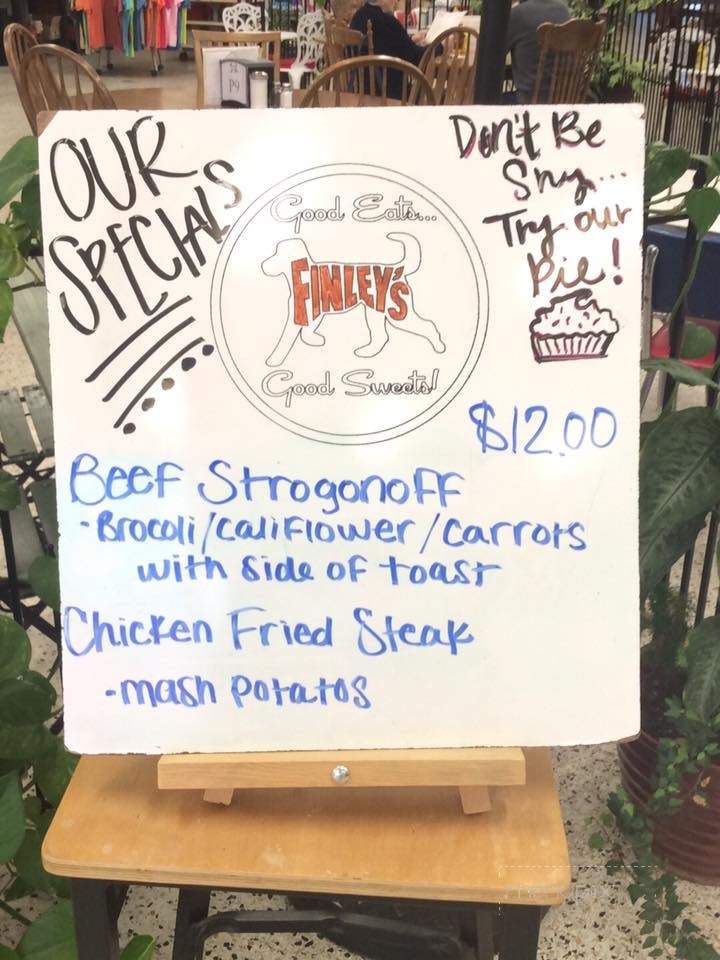 OUR
SPECIALS
Good Eats...
FINLEY'S
Good Sweets!
Don't Be
Shy...
Try our
Pie!
$12.00
Beef Strogonoff
-Brocoli/califlower/carrots
with side of toast
Chicken Fried Steak
-mash potatos